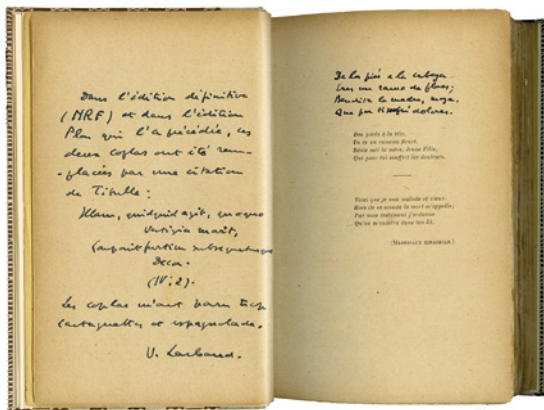 Dans l'édition définitive
(NRF) et dans l'édition
Plon qui l'a précédée, ces
deux coplas ont été rem-
-placées par une citation
de Tibulle :
Illam, quidquid agit, quoquo
vestigia movit,
Componit furtim subsequiturque
Decor.
(IV, 2).
Les coplas m'ont paru trop
castagnettes et espagnolade.
V. Larbaud.
De los pies a la cabeza
Eres un ramo de flores;
Bendita la madre, moza,
Que por ti sufrió dolores.
Des pieds à la tête,
Tu es un rameau fleuri.
Bénie soit la mère, Jeune Fille,
Qui pour toi souffrit les douleurs.
Voici que je suis malade et vieux.
Hors de ce monde la mort m'appelle;
Par mon testament j'ordonne
Qu'on m'enterre dans ton lit.